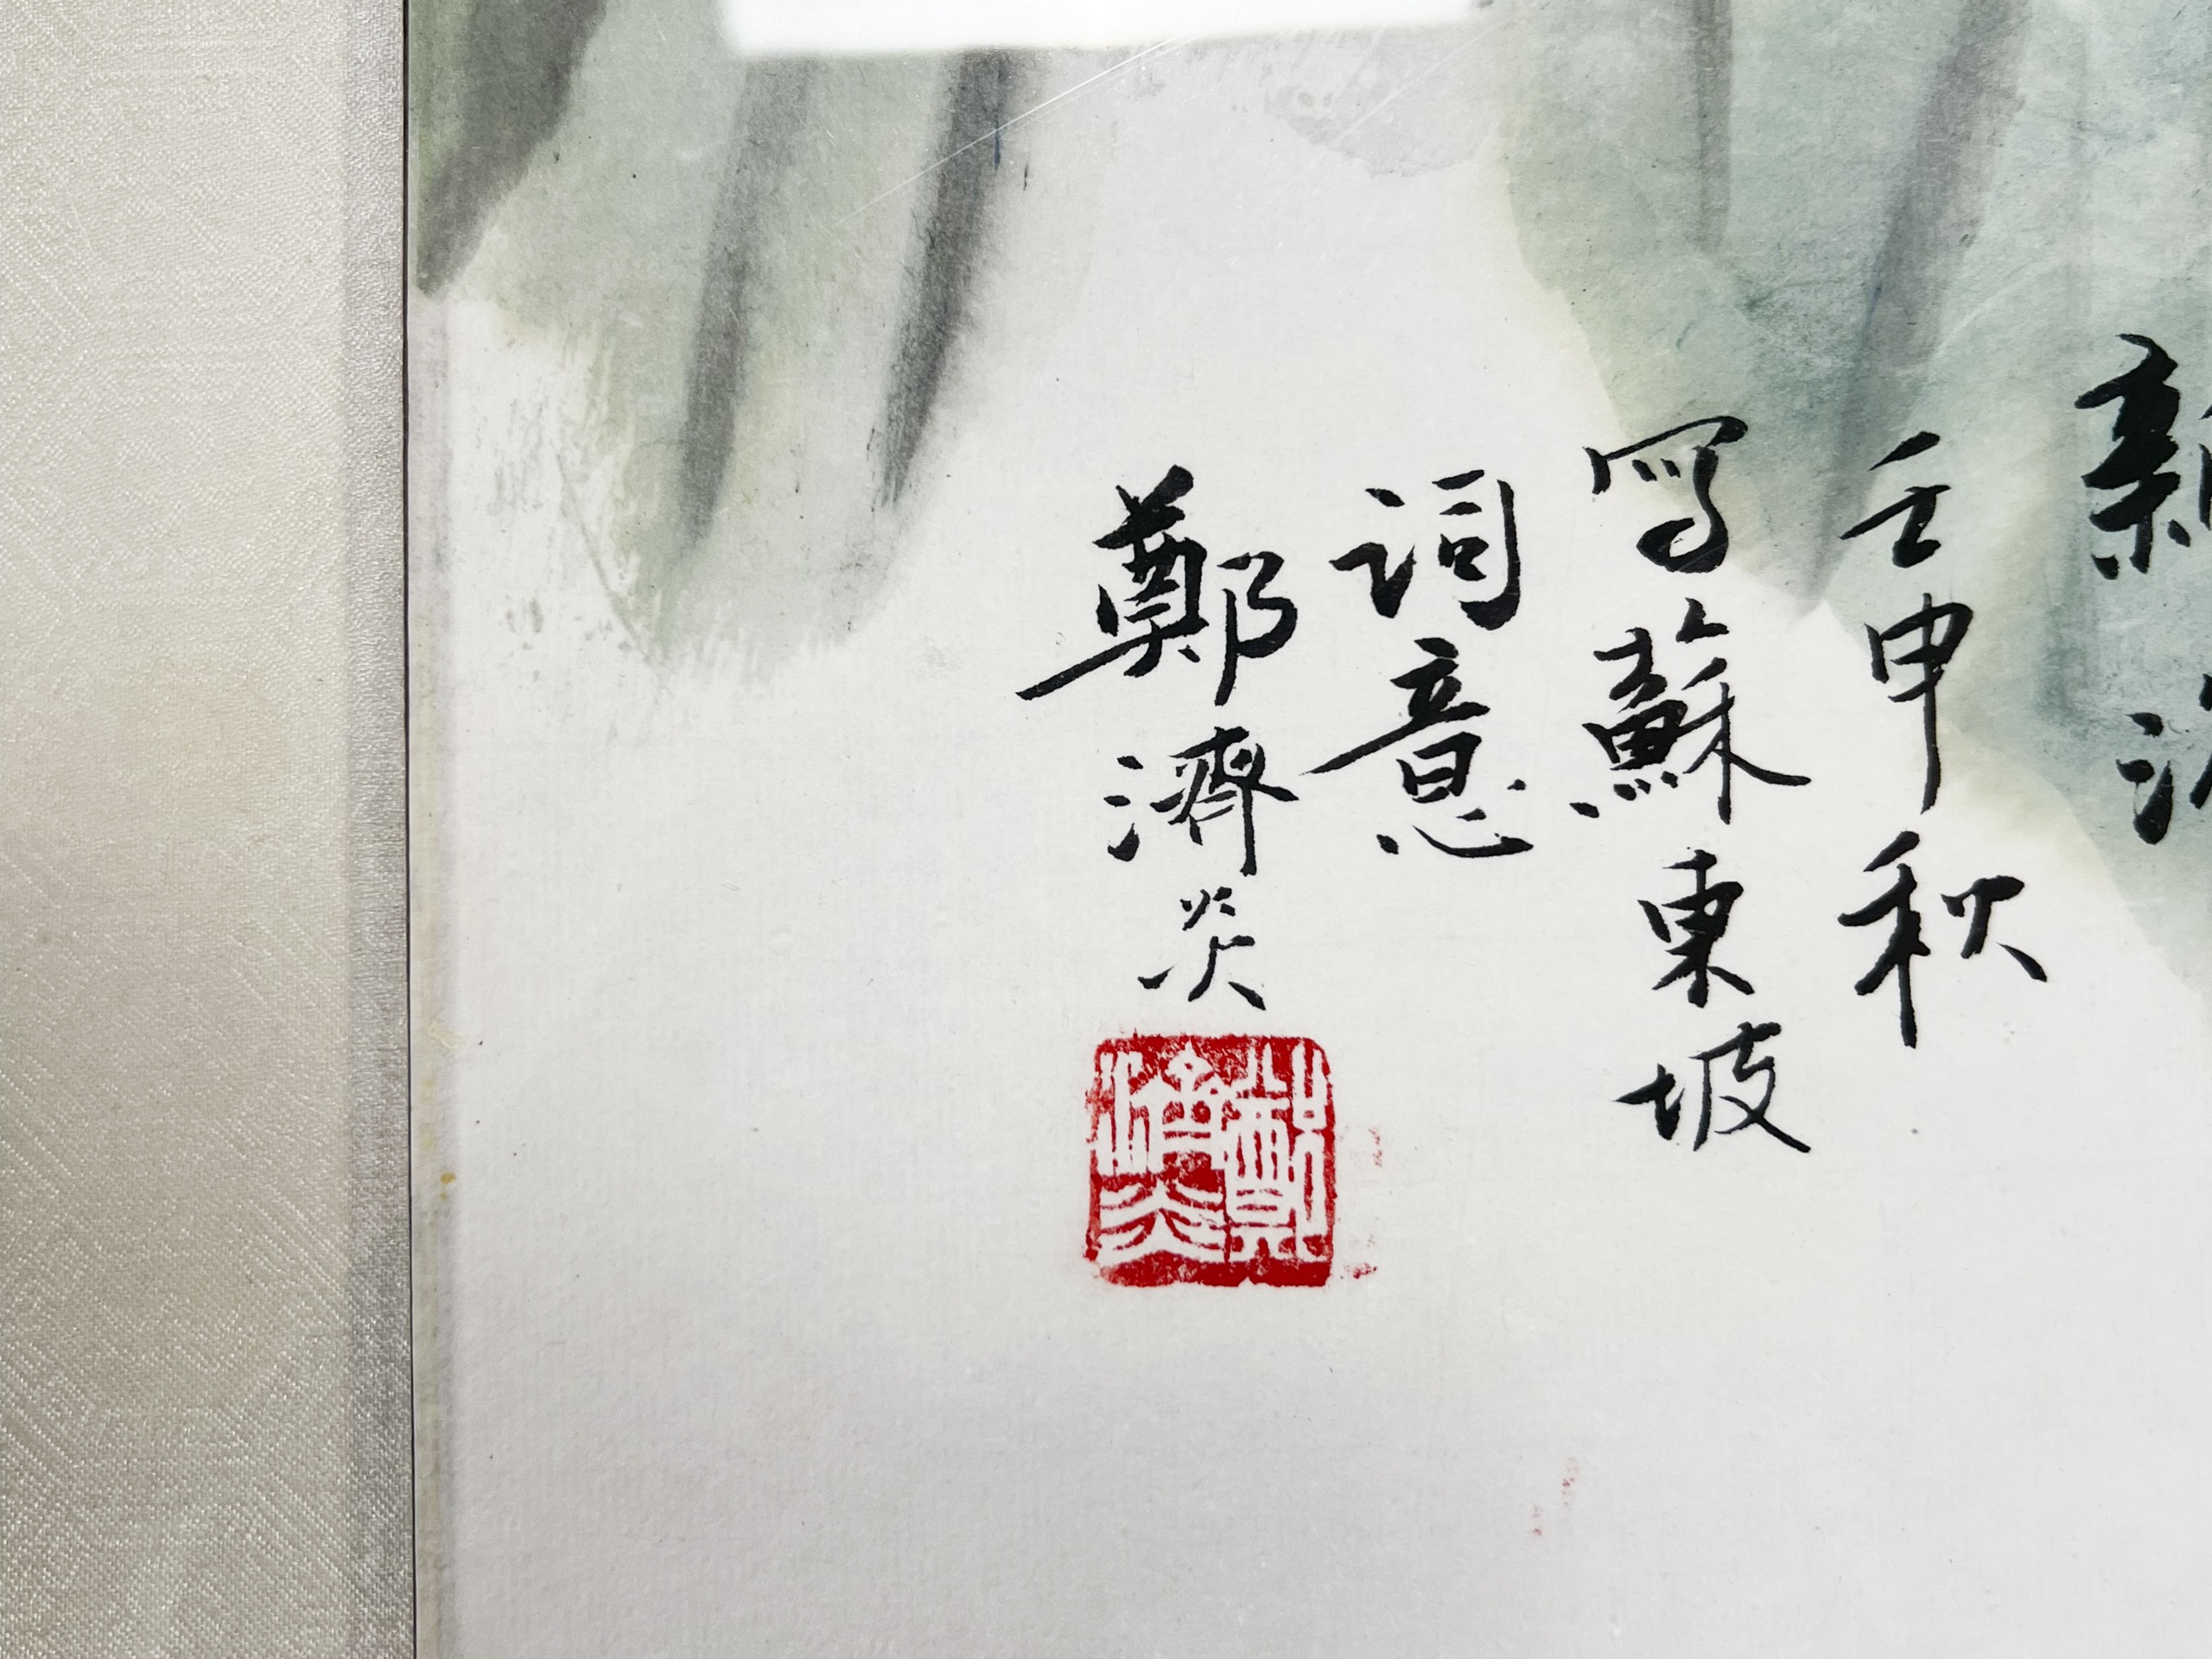 新
壬申秋
寫蘇東坡
詞意
鄭濟炎
鄭濟炎